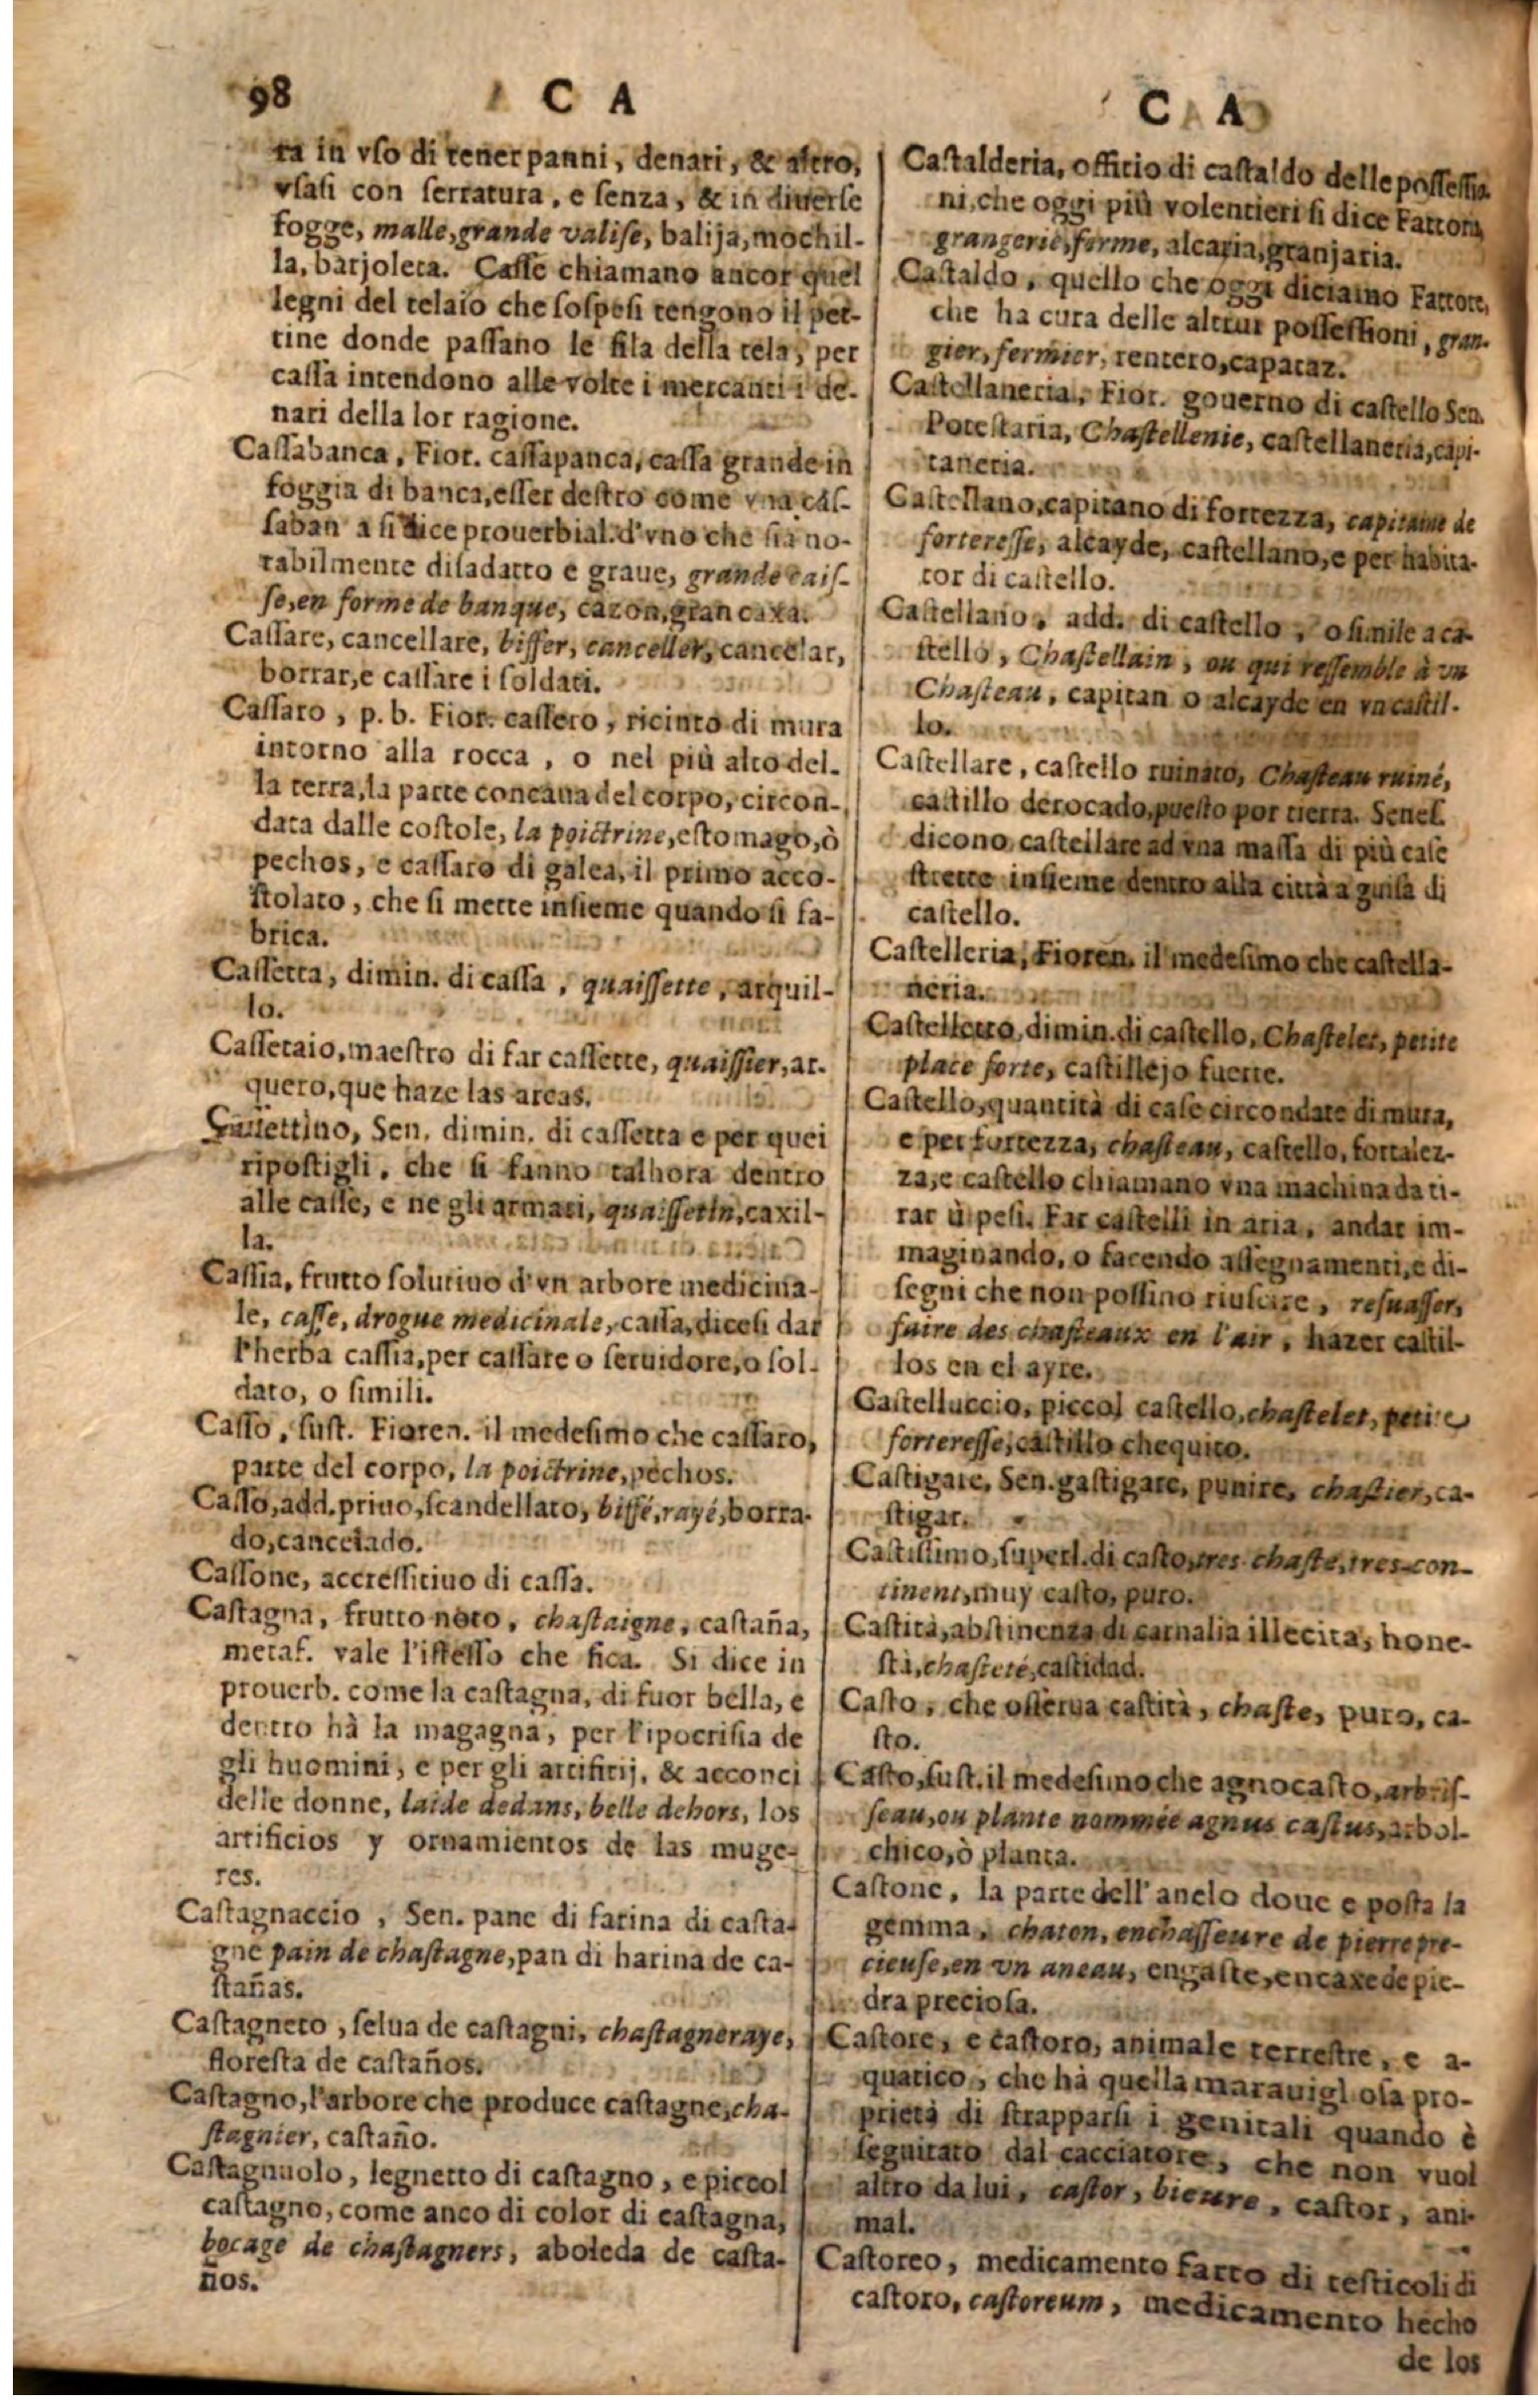 98 C A
ta in vſo di tener panni, denari, & altro,
vſaſi con ſerratura, e ſenza, & in diuerſe
fogge, malle, grande valiſe, balija, mochil-
la, barjoleta. Caſſe chiamano ancor quel
legni del telaio che ſoſpeſi tengono il pet-
tine donde paſſano le fila della tela, per
caſſa intendono alle volte i mercanti i de-
nari della lor ragione.
Caſſabanca, Fior. caſſapanca, caſſa grande in
foggia di banca, eſſer deſtro come vna caſ-
ſaban a ſi dice prouerbial. d'vno che ſia no-
tabilmente diſadatto e graue, grande caiſ-
ſe, en forme de banque, caxon, gran caxa.
Caſſare, cancellare, biffer, canceller, cancelar,
borrar, e caſſare i ſoldati.
Caſſaro, p. b. Fior. caſſero, ricinto di mura
intorno alla rocca, o nel più alto del-
la terra, la parte concaua del corpo, circon-
data dalle coſtole, la poictrine, eſtomago, ò
pechos, e caſſaro di galea, il primo acco-
ſtolato, che ſi mette inſieme quando ſi fa-
brica.
Caſſetta, dimin. di caſſa, quaiſſette, arquil-
lo.
Caſſetaio, maeſtro di far caſſette, quaiſſier, ar-
quero, que haze las arcas.
Caſſettino, Sen. dimin. di caſſetta e per quei
ripoſtigli, che ſi fanno talhora dentro
alle caſſe, e ne gli armati, quaiſſetin, caxil-
la.
Caſſia, frutto ſolutiuo d'vn arbore medicina-
le, caſſe, drogue medicinale, caſſa, diceſi dar
l'herba caſſia, per caſſare o ſeruidore, o ſol-
dato, o ſimili.
Caſſo, ſuſt. Fioren. il medeſimo che caſſaro,
parte del corpo, la poictrine, pechos.
Caſſo, add. priuo, ſcandellato, biffé, rayé, borra-
do, cancelado.
Caſſone, accreſſitiuo di caſſa.
Caſtagna, frutto noto, chaſtaigne, caſtaña,
metaf. vale l'iſteſſo che fica. Si dice in
prouerb. come la caſtagna, di fuor bella, e
dentro hà la magagna, per l'ipocriſia de
gli huomini, e per gli artifitij, & acconci
delle donne, laide dedans, belle dehors, los
artificios y ornamientos de las muge-
res.
Caſtagnaccio, Sen. pane di farina di caſta-
gne pain de chaſtagne, pan di harina de ca-
ſtañas.
Caſtagneto, ſelua de caſtagni, chaſtagneraye,
floreſta de caſtaños.
Caſtagno, l'arbore che produce caſtagne, cha-
ſtagnier, caſtaño.
Caſtagnuolo, legnetto di caſtagno, e piccol
caſtagno, come anco di color di caſtagna,
bocage de chaſtagners, aboleda de caſta-
ños.
C A
Caſtalderia, officio di caſtaldo delle poſſeſſio-
ni, che oggi più volentieri ſi dice Fattoria,
grangerie, ferme, alcaria, granjaria.
Caſtaldo, quello che oggi diciamo Fattore,
che ha cura delle altrui poſſeſſioni, gran-
gier, fermier, rentero, capataz.
Caſtellaneria, Fior. gouerno di caſtello Sen.
Poteſtaria, Chaſtellenie, caſtellaneria, capi-
taneria.
Caſtellano, capitano di fortezza, capitaine de
fortereſſe, alcayde, caſtellano, e per habita-
tor di caſtello.
Caſtellano, add. di caſtello, o ſimile a ca-
ſtello, Chaſtellain, ou qui reſſemble à vn
Chaſteau, capitan o alcayde en vn caſtil-
lo.
Caſtellare, caſtello ruinato, Chaſteau ruiné,
caſtillo derocado, pueſto por tierra. Seneſ.
dicono caſtellare ad vna maſſa di più caſe
ſtrette inſieme dentro alla città a guiſa di
caſtello.
Caſtelleria, Fioren. il medeſimo che caſtella-
neria.
Caſtelletto, dimin. di caſtello, Chaſtelet, petite
place forte, caſtillejo fuerte.
Caſtello, quantità di caſe circondate di mura,
e per fortezza, chaſteau, caſtello, fortalez-
za, e caſtello chiamano vna machina da ti-
rar ù peſi. Far caſtelli in aria, andar im-
maginando, o facendo aſſegnamenti, e di-
ſegni che non poſſino riuſcire, reſuaſſer,
faire des chaſteaux en l'air, hazer caſtil-
los en el ayre.
Caſtelluccio, piccol caſtello, chaſtelet, petite
fortereſſe, caſtillo chequito.
Caſtigare, Sen. gaſtigare, punire, chaſtier, ca-
ſtigar.
Caſtiſſimo, ſuperl. di caſto, tres chaſte, tres-con-
tinent, muy caſto, puro.
Caſtità, abſtinenza di carnalia illecita, hone-
ſtà, chaſteté, caſtidad.
Caſto, che oſſerua caſtità, chaſte, puro, ca-
ſto.
Caſto, ſuſt. il medeſimo che agnocaſto, arbriſ-
ſeau, ou plante nommée agnus caſtus, arbol-
chico, ò planta.
Caſtone, la parte dell'anelo doue e poſta la
gemma, chaton, enchaſſeure de pierre pre-
cieuſe, en vn aneau, engaſte, encaxe de pie-
dra precioſa.
Caſtore, e caſtoro, animale terreſtre, e a-
quatico, che hà quella marauiglioſa pro-
prietà di ſtrapparſi i genitali quando è
ſeguitato dal cacciatore, che non vuol
altro da lui, caſtor, bieure, caſtor, ani-
mal.
Caſtoreo, medicamento fatto di teſticoli di
caſtoro, caſtoreum, medicamento hecho
de los